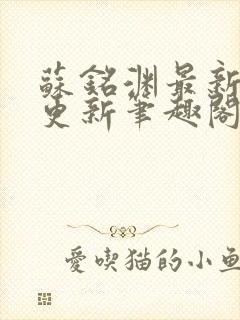 蘇銘淵最新
更新筆趣閣
愛喫猫的小魚